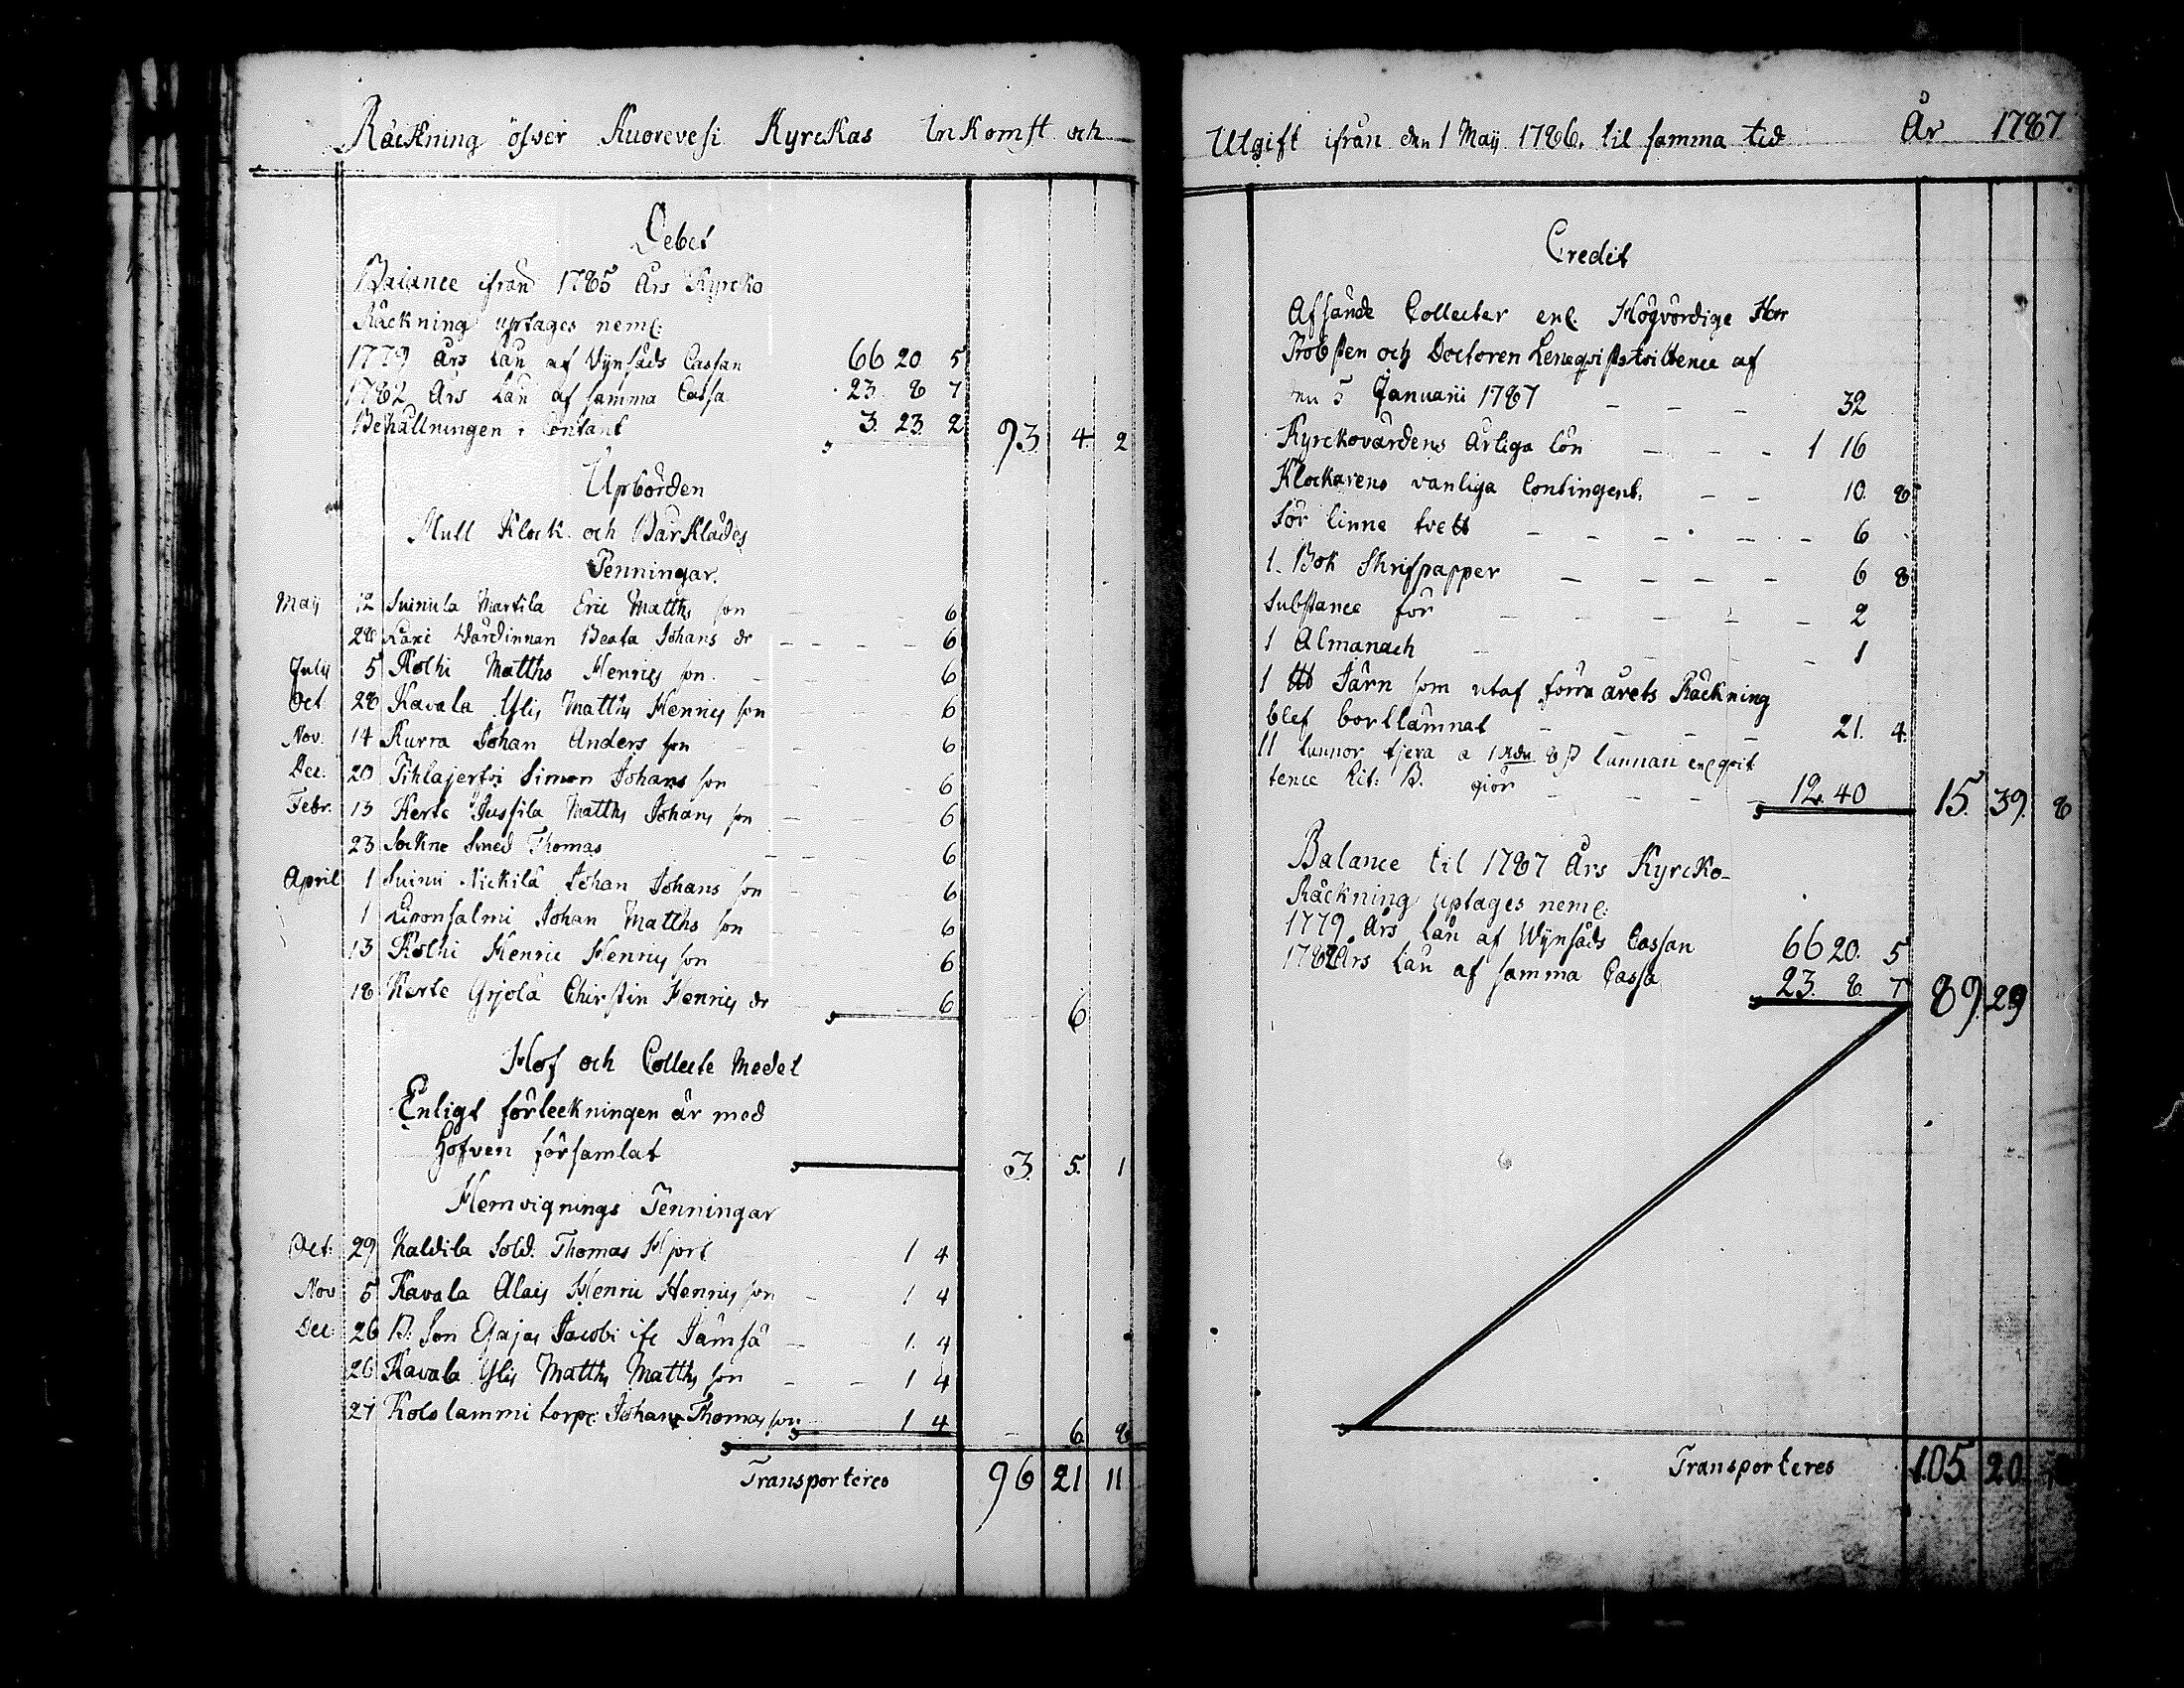 Räckning öfver Kuorevesi Kyrckas Inkomst och
Debet
Balance ifrån 1785 Års Kyrcko
Räckning uptages neml:
1779 Års Lån af Wynsåds Cassan 66 20 5
1782 Års Lån af samma Cassa 23. 8 7
Behållningen i Contant 3. 23. 2 93. 4. 2
Upbörden
Mull Klock och Bårklädes
Penningar.
Maij 12 Suinula Martila Eric Matths son 6
28 Värdinnan Beata Johans dr 6
July 5 Kolhi Matths Henrics son 6
Oct 28 Kavala Ylis Matths Henrics son 6
Nov. 14 Kurra Johan Anders son 6
Dec. 20 Pihlajerfvi Simon Johans son 6
Febr. 13 Kerte Jussila Matths Johans son 6
23 Sockne Smed Thomas 6
April 1 Suinu Nickilä Johan Johans son 6
1 Leponsalmi Johan Matths son 6
13 Kolhi Henric Henrics son 6
18 Kerte Yrjolä Chirstin Henrics dr 6 6
Hof och Collecte Medel
Enligt förteckningen är med
Hofven församlat 3. 5. 1
Hemvignings Penningar
Oct: 29 Kaldila Sold. Thomas Hjort 1 4
Nov 5 Kavala Alais Henric Henrics son 1 4
Dec: 26 B. Son Esajas Jacobi ifr Jämsä 1. 4
26 Kavala Ylis Matths Matths son 1 4
27 Kololammi torp: Johan Thomas son 1 4 6. 8
Transporteres 96 21 11
Utgift ifrån den 1 Maij 1786. til samma tid År 1787
Credit
Afsände Collecter enl. Högvördige Herr
Probsten och Doctoren Lenqvists qvittence af
den 5 Januarii 1787 32
Kyrckovärdens Årliga lön 1 16
Klockarens vanliga Contingent. 10. 8
för linne tvett 6
1. Bok Skrifpapper 6 8
Substance för 2
1 Almanach 1
1 ℔ Järn som utaf förra årets Räckning
blef bortlämnat 21. 4.
11 tunnor tjera a 1 Rdr 8 s tunnan enl qvit
tence Lit: B. giör 12. 40 15. 39. 8
Balance til 1787 Års Kyrcko-
Räckning uptages neml:
1779 Års Lån af Wynsåds Cassan 66 20. 5
1782 Års Lån af samma Cassa 23. 8. 7 89. 29
Transporteres 105. 20